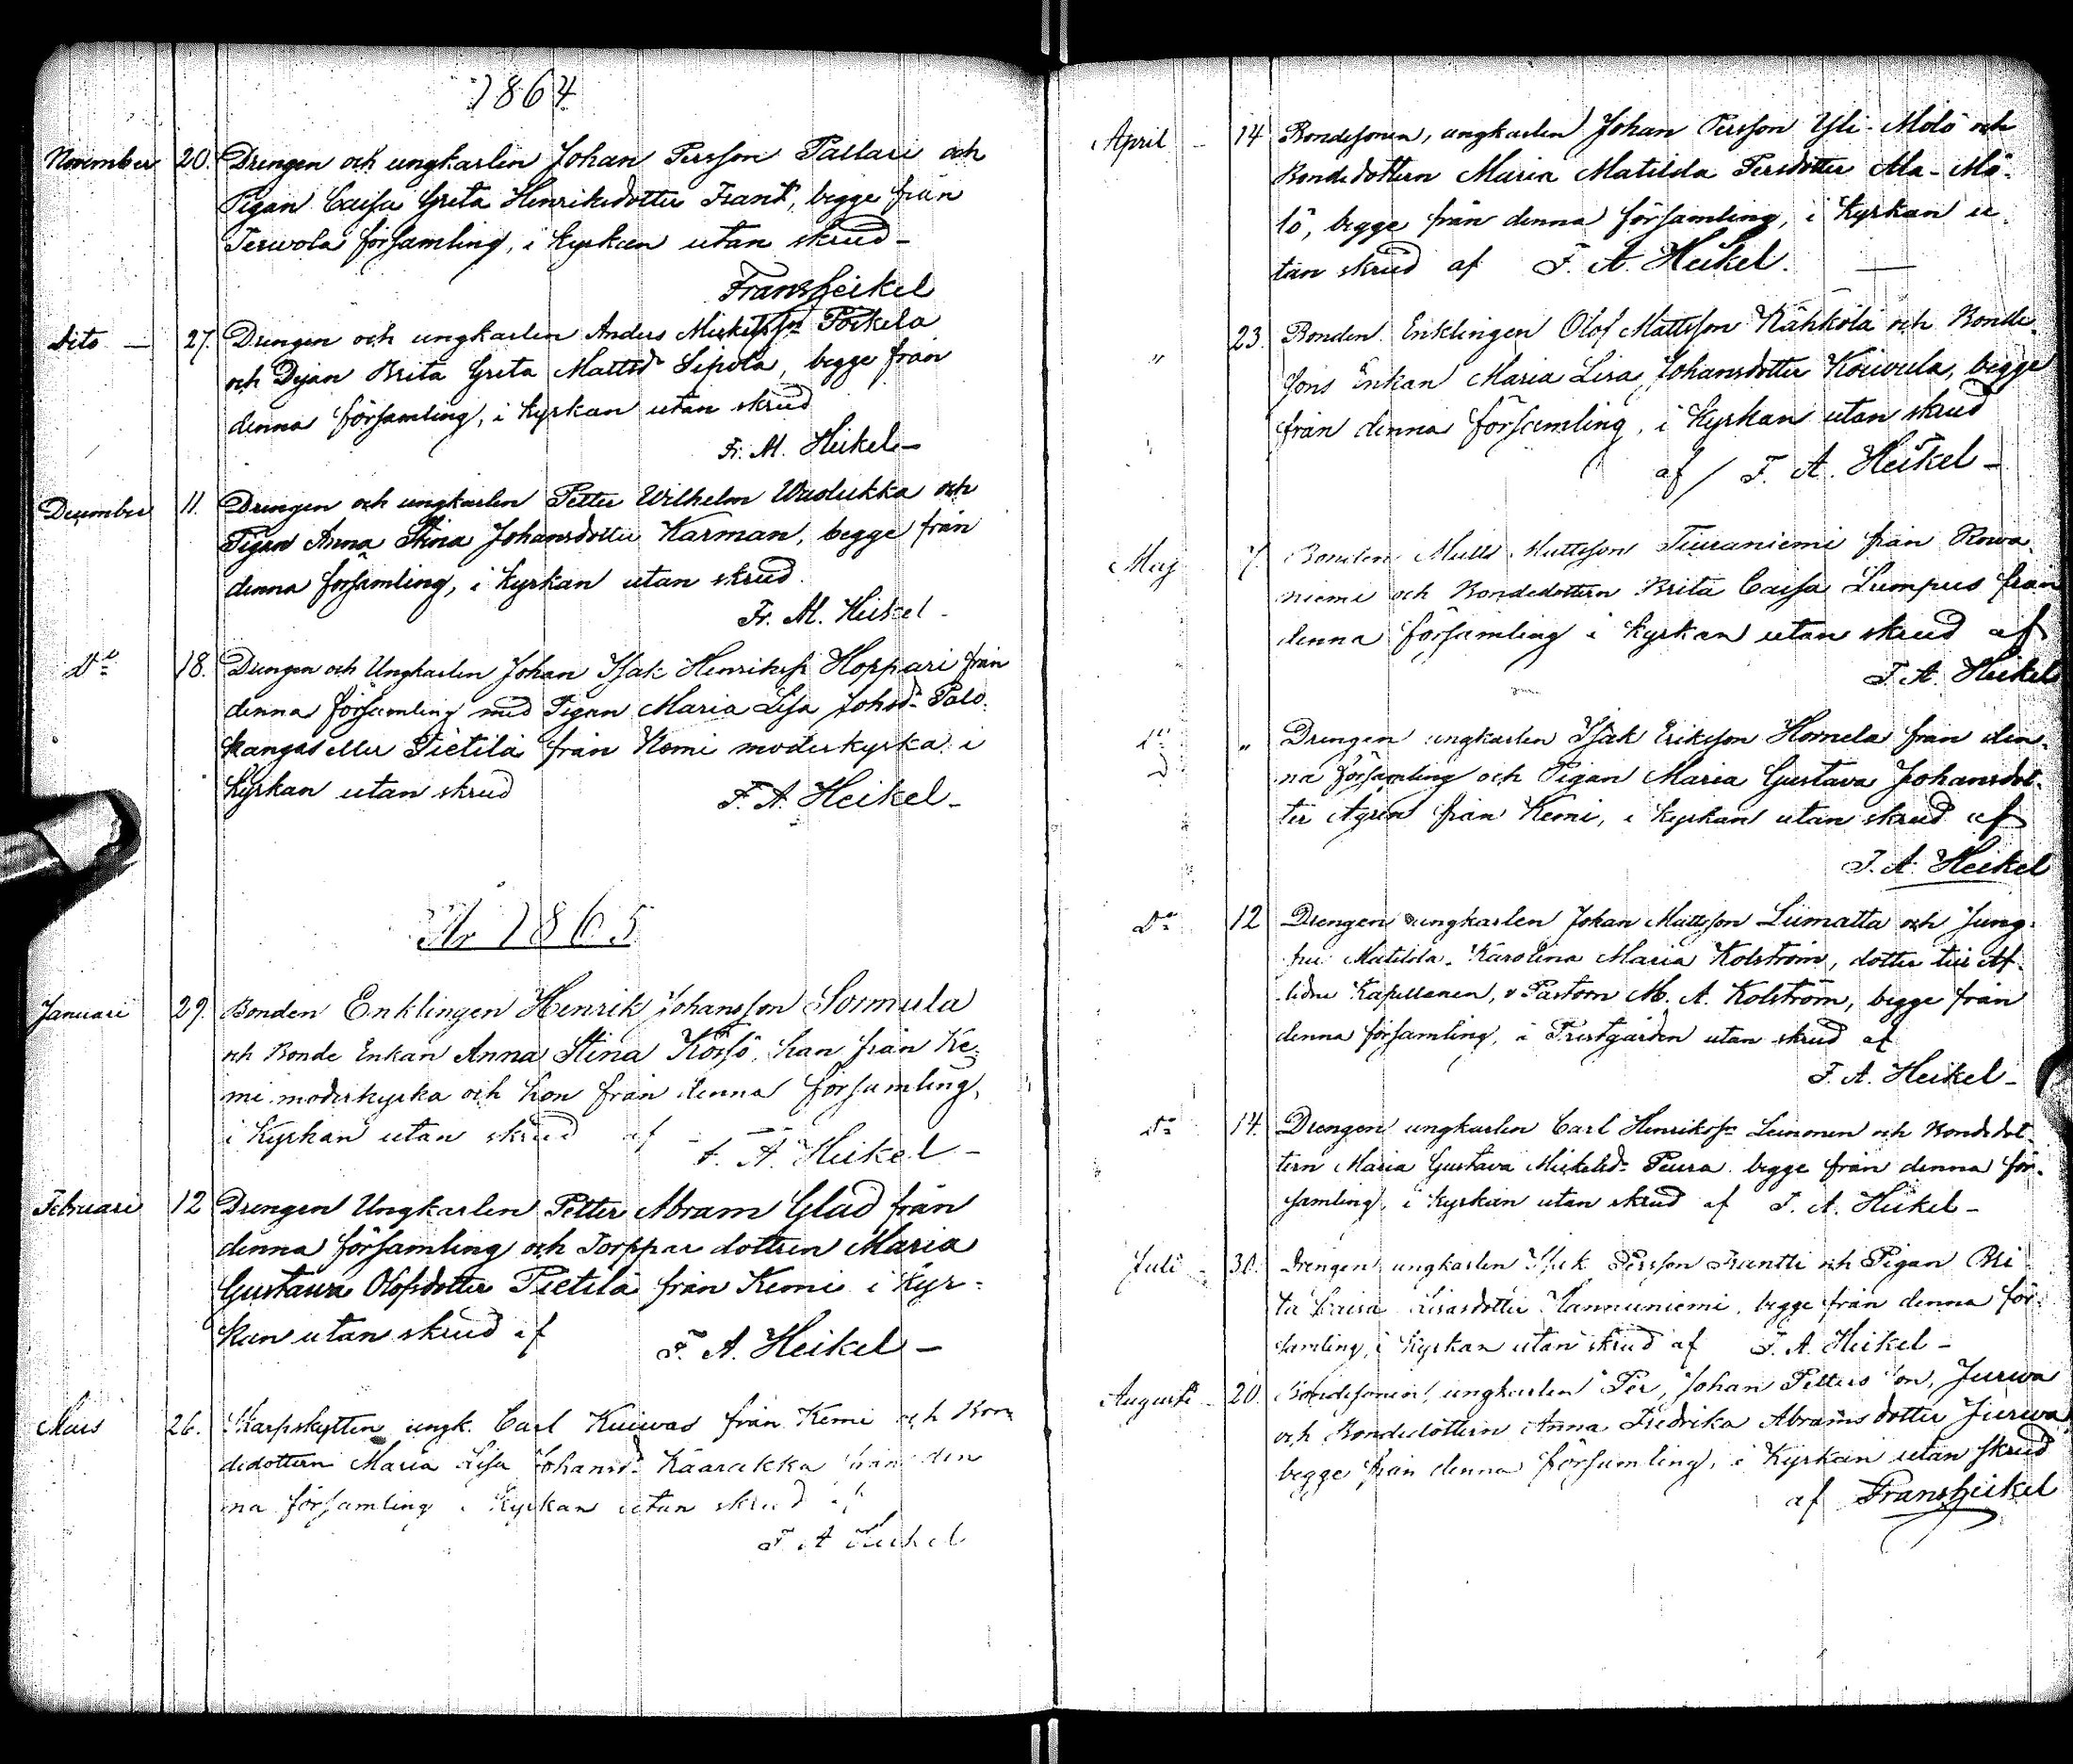 1864
November 20. Drengen och ungkarlen Johan Persson Pallari och
Pigan Caisa Greta Henriksdotter Frant, begge från
Terwola församling, i kyrkan utan skrud -
Frans Heikel
Dito — 27. Drengen och ungkarlen Anders Mickelsson Pörkelä
och Dejan Brita Greta Mattsdr Sipola, begge från
denna församling, i kyrkan utan skrud
Fr. A. Heikel -
December 11. Drengen och ungkarlen Petter Wilhelm Wuolukka och
Pigan Anna Stina Johansdotter Karman, begge från
denna församling, i kyrkan utan skrud.
Fr. A. Heikel -
Do 18. Drengen och Ungkarlen Johan Isak Henrikss Hoppari från
denna församling med Pigan Maria Lisa Johsdr Palo-
kangas eller Pietilä från Kemi moderkyrka i
Kyrkan utan skrud F. A. Heikel -
År 1865
Januari 29. Bonden Enklingen Henrik Johansson Sormula
och Bonde Enkan Anna Stina Körssö, han från Ke-
mi moderkyrka och hon från denna församling,
i Kyrkan utan skrud af F. A. Heikel -
Februari 12 Drengen Ungkarlen Petter Abram Glad från
denna församling och Torppar dottren Maria
Gustava Olofsdotter Pietilä från Kemi i Kyr-
kan utan skrud af F. A. Heikel -
Mars 26. Skarpskytten ungk. Carl Kuiwas från Kemi och Bon-
dedottern Maria Lisa Johansdr Kaarakka från den
na församling i Kyrkan utan skrud af
F. A. Heikel
April - 14 Bondesonen, ungkarlen Johan Persson Yli-Mölö och
Bondedottern Maria Matilda Persdotter Ala-Mö-
lö, begge från denna församling, i Kyrkan u-
tan skrud af F. A. Heikel. —
" 23. Bonden Enklingen Olof Mattsson Kähkölä och Bonde-
sons Enkan Maria Lisa Johansdotter Koivula, begge
från denna församling, i Kyrkan utan skrud
af / F. A. Heikel -
Maj 7. Bonden Matts Mattsson Tiuraniemi från Rowa-
niemi och Bondedottern Brita Caisa Lumpus från
denna församling i Kyrkan utan skrud af
F. A. Heikel
do " Drengen ungkarlen Isak Eriksson Homela från den-
na församling och Pigan Maria Gustava Johansdot-
ter Ågren från Kemi, i Kyrkan utan skrud af
F. A. Heikel
Do 12 Drengen ungkarlen Johan Mattsson Liimatta och Jung-
fru Matilda Karolina Maria Kolström, dotter till Af-
lidne Kapellanen, v Pastorn M. A. Kolström, begge från
denna församling, i Prestgården utan skrud af
F. A. Heikel -
do 14. Drengen ungkarlen Carl Henrikss Leinonen och Bondedot-
tern Maria Gustava Mickelsdr Peura begge från denna för-
samling, i Kyrkan utan skrud af F. A. Heikel -
Juli - 30. Drengen ungkarlen Isak Persson Frantti och Pigan Bri
ta Caisa Hannuniemi, begge från denna för-
samling, i Kyrkan utan skrud af F. A. Heikel -
Augusti - 20. Bondesonen, ungkarlen Per, Johan Petters son, Jurwa
och Bondedottern Anna Fredrika Abramsdotter Jurwa
begge från denna församling, i Kyrkan utan skrud
af Frans Heikel